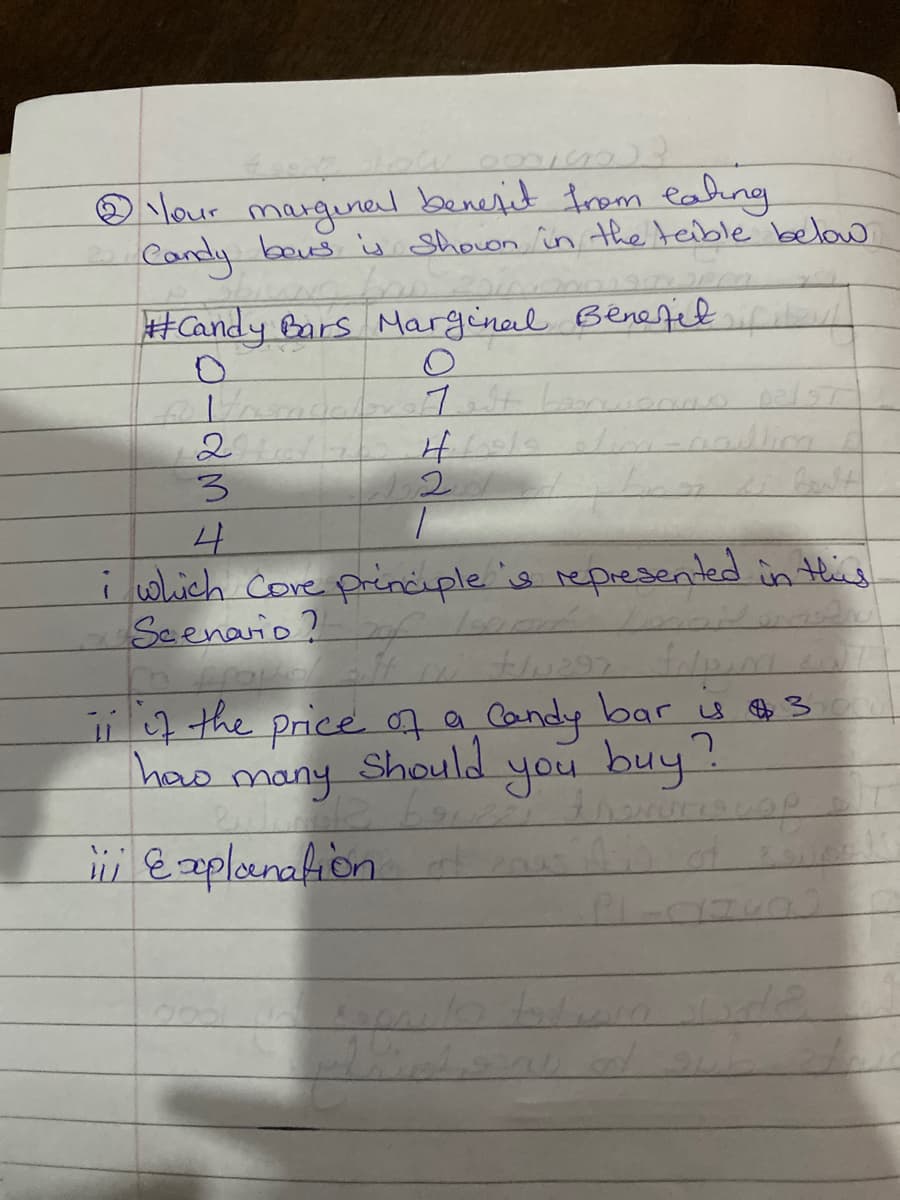 ② Your marginal benefit from eating
Candy bars is Shown in the table below
#Candy Bars Marginal Benefit
0 0
1 7
2 4
3 2
4 1
i which Core principle is represented in this
Scenario?
ii if the price of a Candy bar is $3
how many Should you buy?
iii Explanation